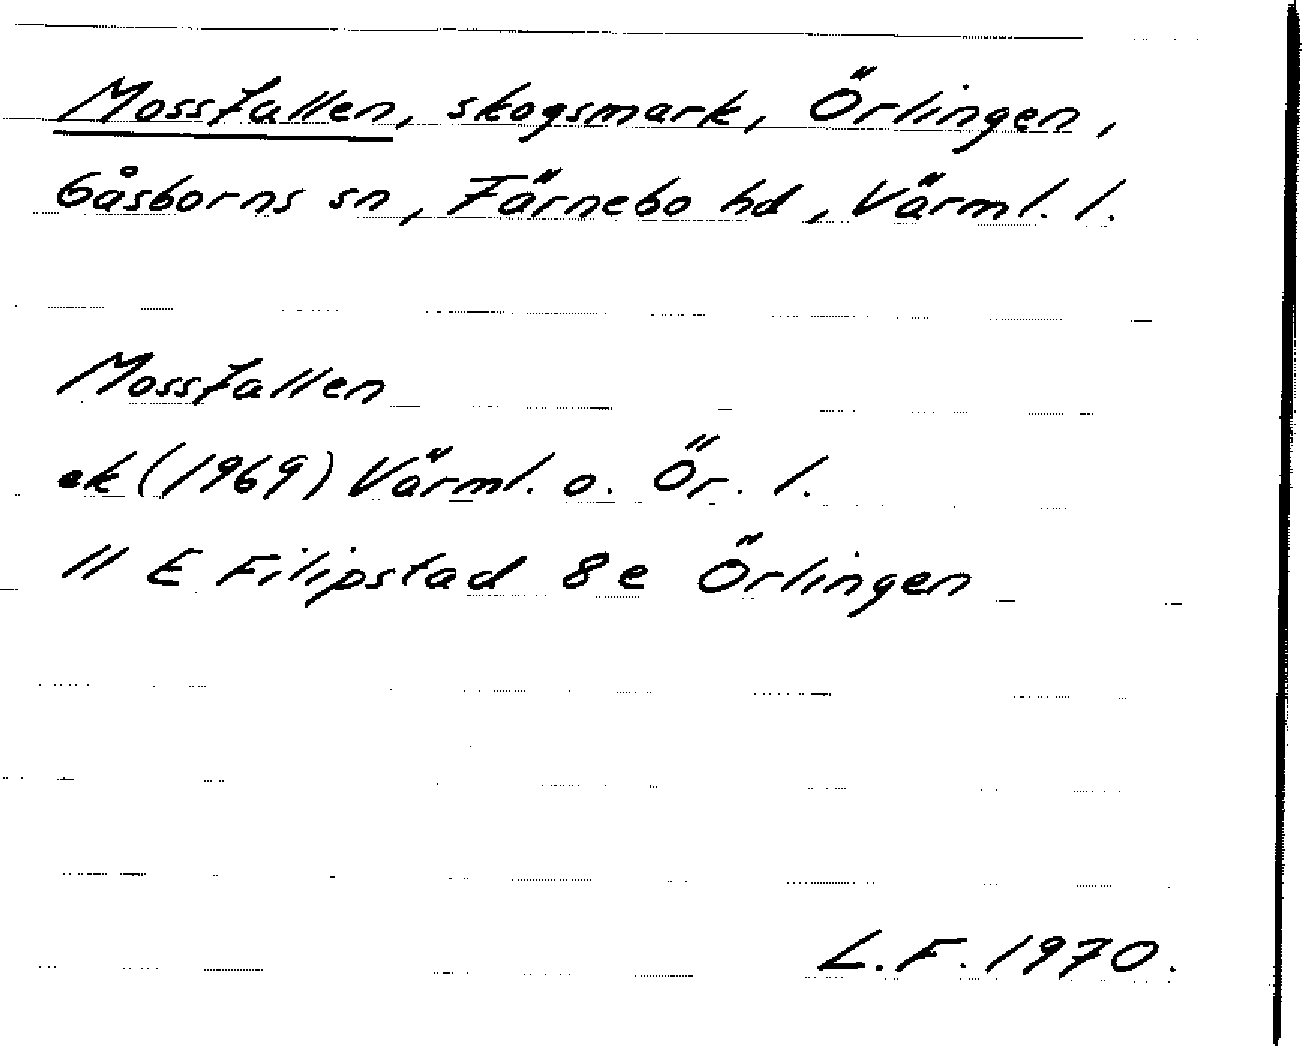 Mossfallen, skogsmark, Örlingen,
Gåsborns sn, Färnebo hd, Värml. l.
Mossfallen
ek (1969) Värml. o. Ör. l.
11 E Filipstad 8e Örlingen
L.F. 1970.